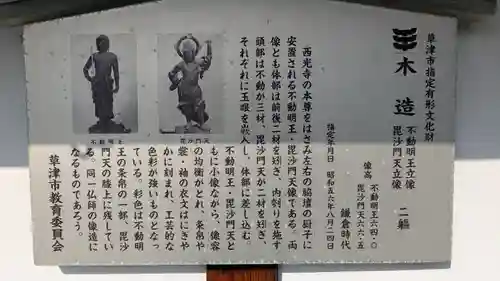 草津市指定有形文化財
木造
不動明王立像
毘沙門天立像
二軀
像高
不動明王六四・〇
毘沙門天六六・五
鎌倉時代
指定年月日 昭和五六年八月二四日
西光寺の本尊をはさみ左右の脇壇の厨子に
安置される不動明王・毘沙門天像である。両
像とも体部は前後二材を矧ぎ、内刳りを施す
頭部は不動が三材、毘沙門天が二材を矧ぎ、
それぞれに玉眼を嵌入し、体部に差し込む。
不動明王・毘沙門天と
もに小像ながら、像容
の均衡がとれ、条帛や
裳・袖の衣文はにぎや
かに刻まれ、工芸的な
色彩が強いものとなっ
ている。彩色は不動明
王の条帛の一部、毘沙
門天の膝上に残してい
る。同一仏師の像造に
なるものであろう。
草津市教育委員会
不動明王
毘沙門天